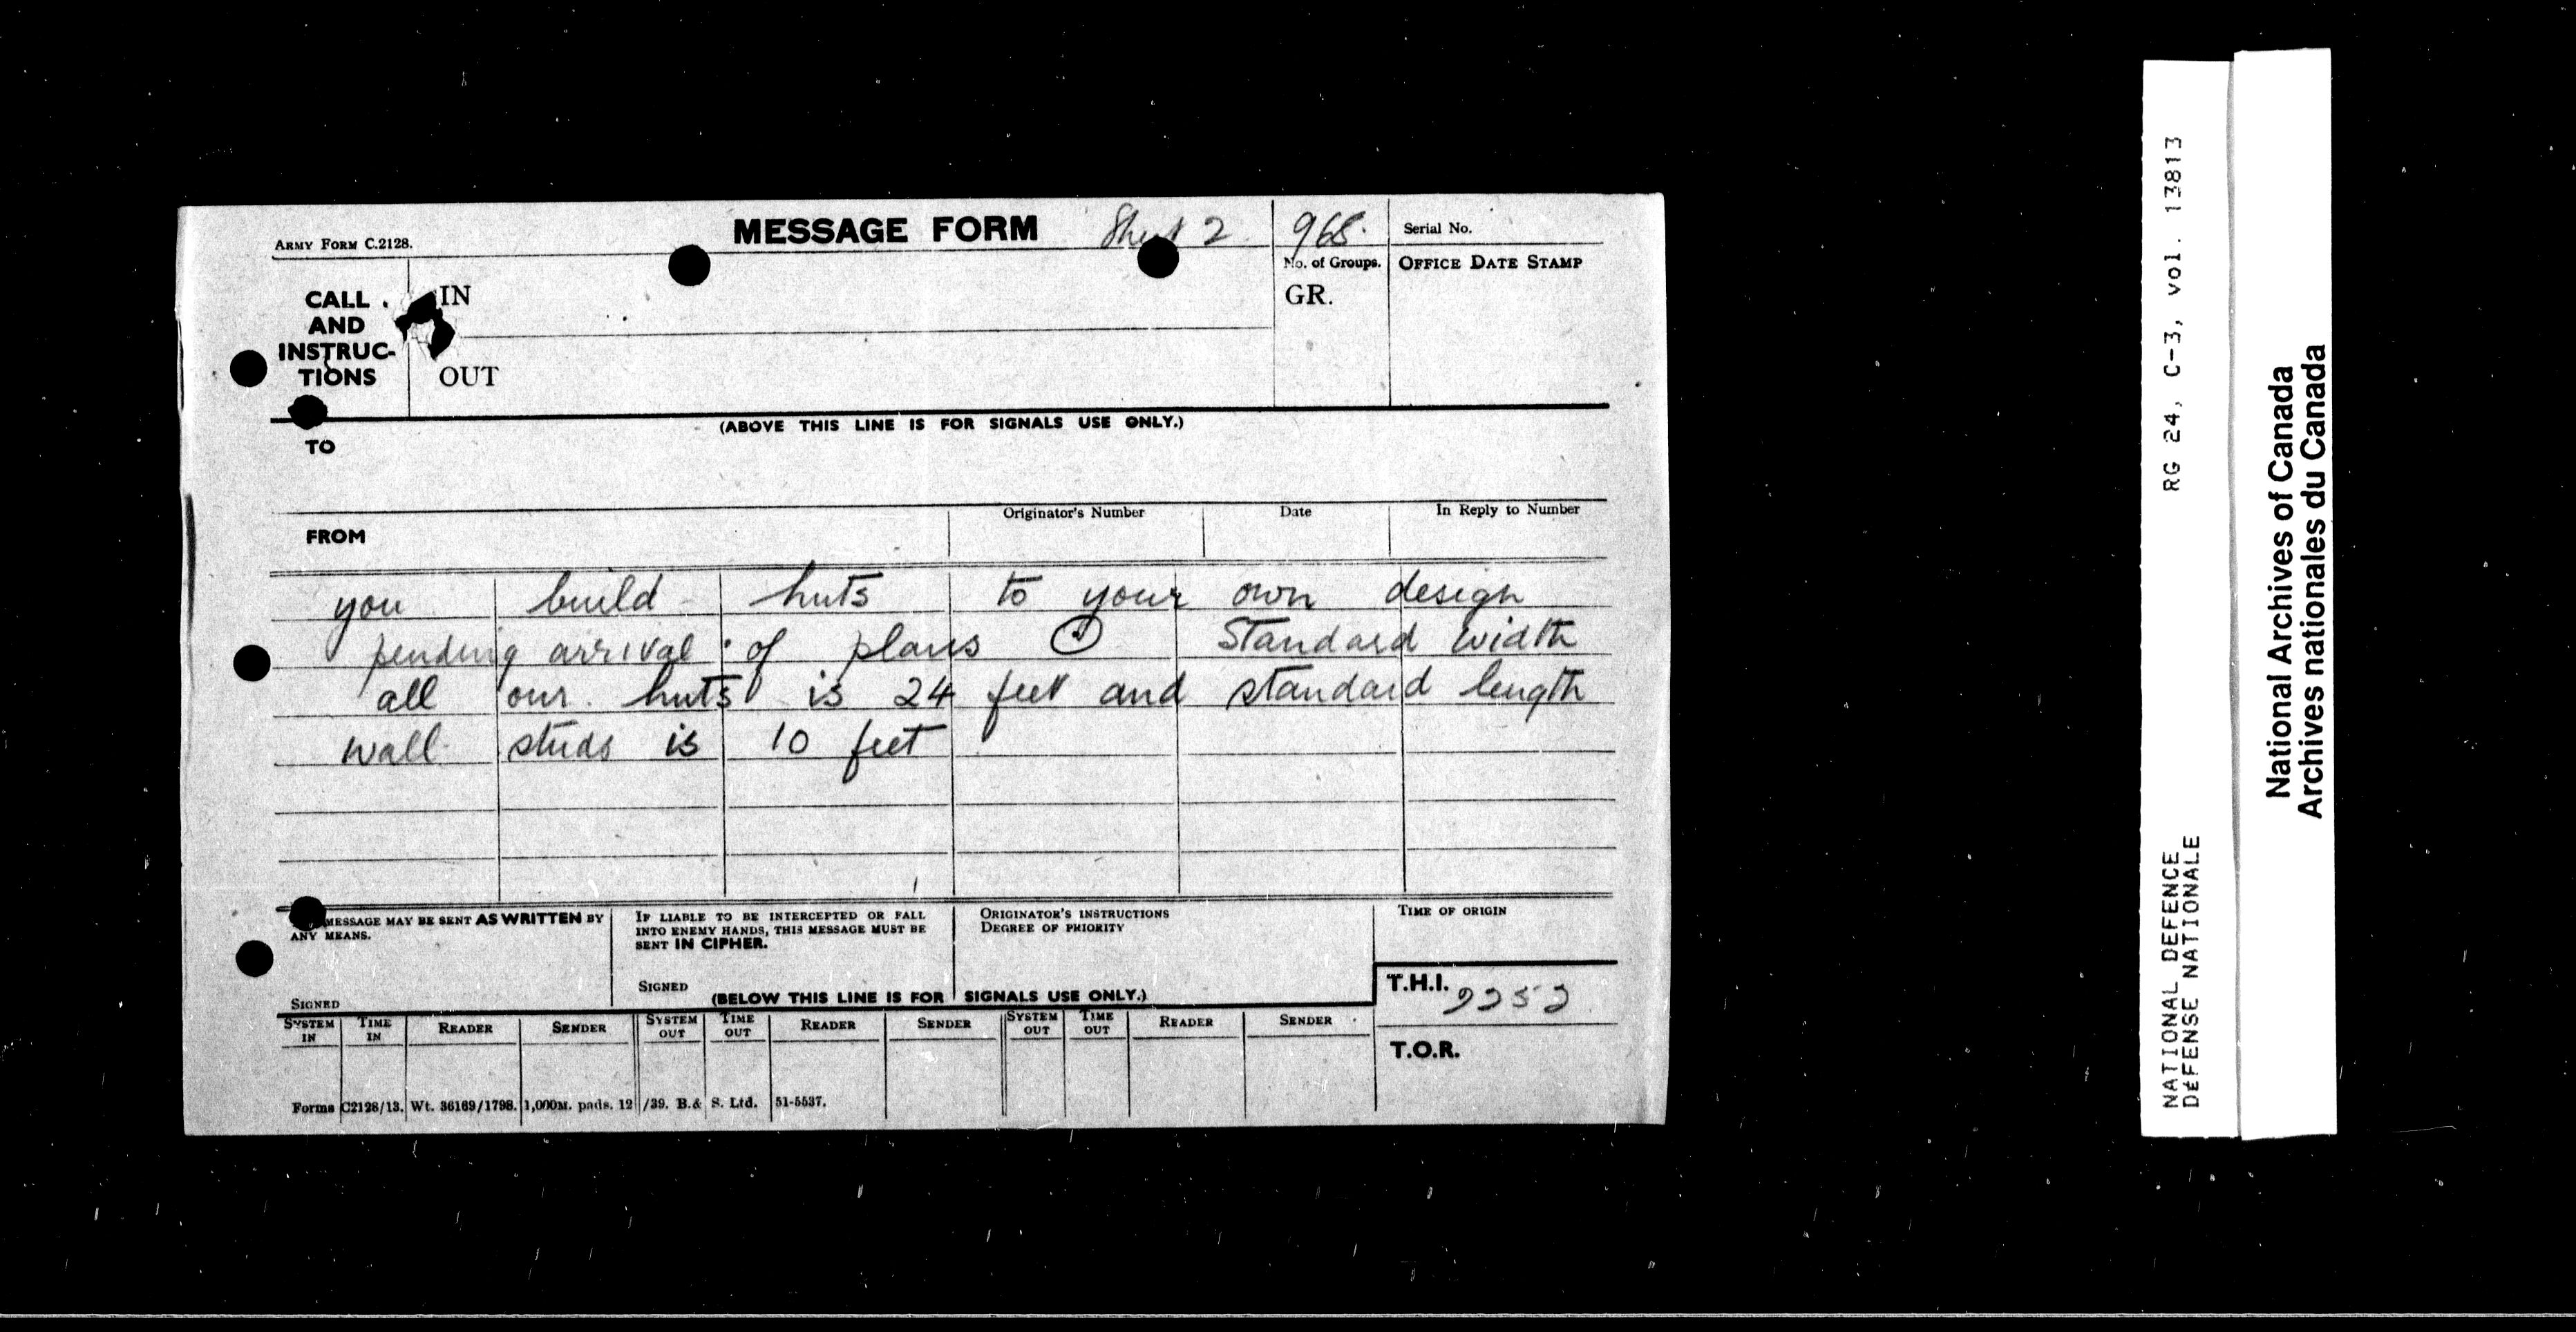 ARMY FORM C.2128.
MESSAGE FORM
Sheet 2
968.
Serial No.
No. of Groups.
GR.
OFFICE DATE STAMP
CALL
AND
INSTRUC-
TIONS
IN
OUT
(ABOVE THIS LINE IS FOR SIGNALS USE ONLY.)
TO
FROM
Originator's Number
Date
In Reply to Number
you build huts to your own design
pending arrival of plans ⊙ Standard width
all our huts is 24 feet and standard length
wall studs is 10 feet
MESSAGE MAY BE SENT AS WRITTEN BY
ANY MEANS.
SIGNED
IF LIABLE TO BE INTERCEPTED OR FALL
INTO ENEMY HANDS, THIS MESSAGE MUST BE
SENT IN CIPHER.
SIGNED
ORIGINATOR'S INSTRUCTIONS
DEGREE OF PRIORITY
TIME OF ORIGIN
(BELOW THIS LINE IS FOR SIGNALS USE ONLY.)
T.H.I. 2252
T.O.R.
SYSTEM IN
TIME IN
READER
SENDER
SYSTEM OUT
TIME OUT
READER
SENDER
SYSTEM OUT
TIME OUT
READER
SENDER
Forms C2128/13. Wt. 36169/1798. 1,000M. pads. 12/39. B.& S. Ltd. 51-5537.
RG 24, C-3, vol. 13813
NATIONAL DEFENCE
DÉFENSE NATIONALE
National Archives of Canada
Archives nationales du Canada